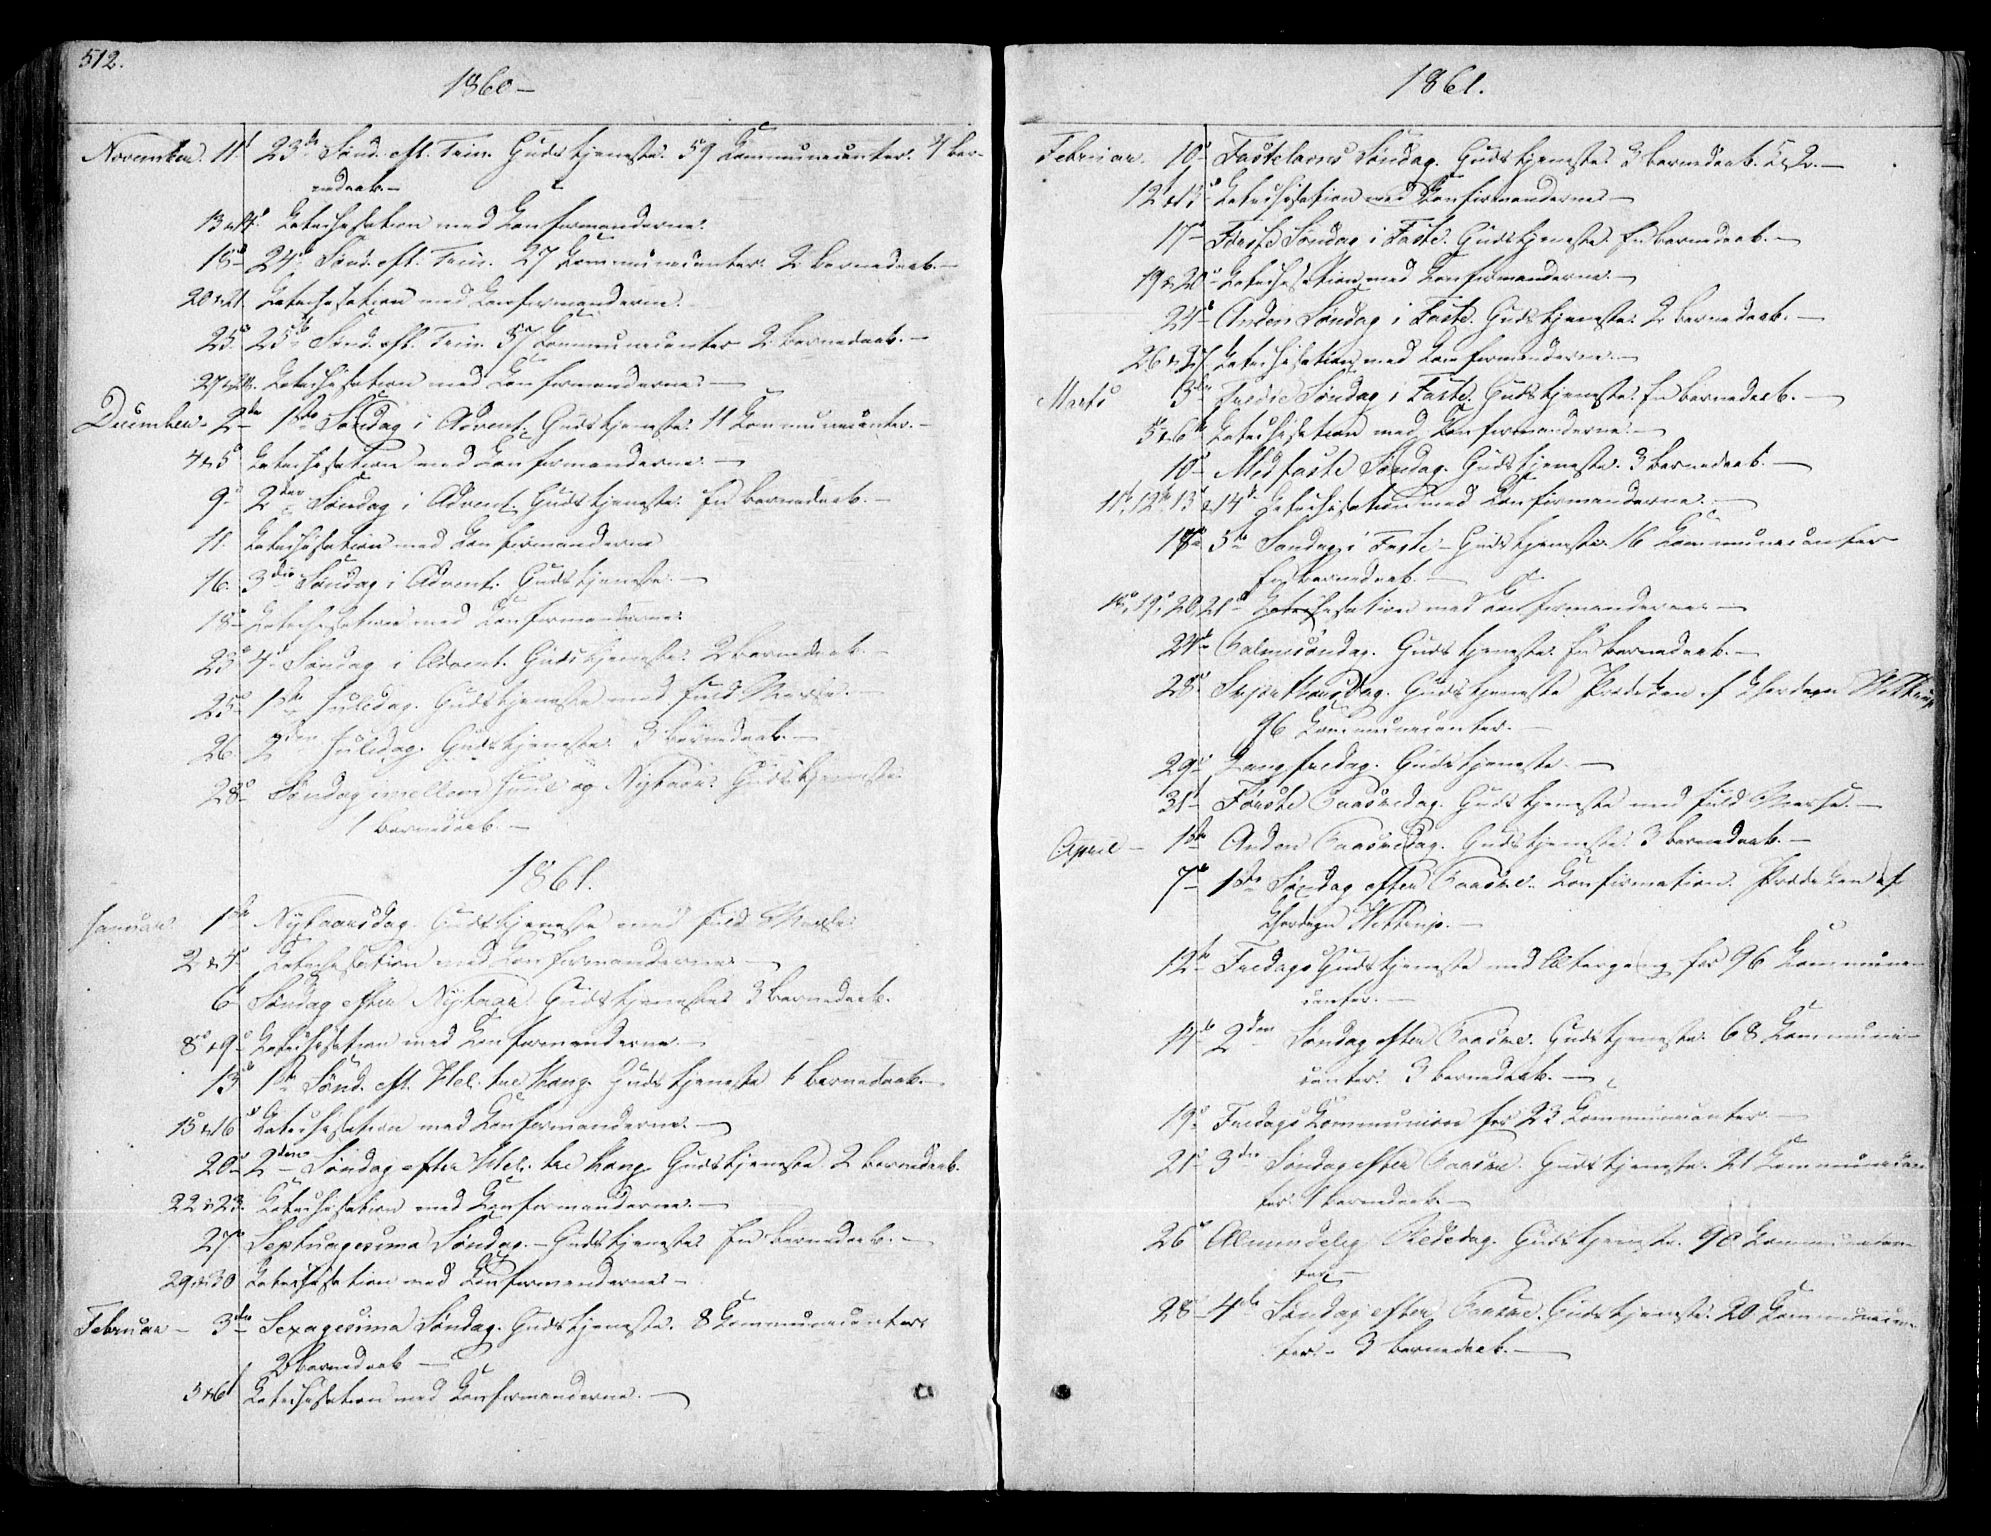 512.
1860 –
November. 11te 23de Sønd. eft. Trin. Gudstjeneste. 59 Kommunicanter. 4 Bar-
nedaab. –
13 & 14de Katechisation med Konfirmanderne.
18de 24de Sønd. eft. Trin. 27 Kommunicanter. 2 Barnedaab. –
20 & 21. Katechisation med Konfirmanderne.
25de 25de Sønd. eft. Trin. 57 Kommunicanter 2 Barnedaab. –
27 & 28. Katechisation med Konfirmanderne. –
December – 2den 1ste Søndag i Advent. Gudstjeneste. 11 Kommunicanter. –
4 & 5te Katechisation med Konfirmanderne. –
9de 2den Søndag i Advent. Gudstjeneste. En Barnedaab. –
11. Katechisation med Konfirmanderne
16. 3die Søndag i Advent. Gudstjeneste. –
18de Katechisation med Konfirmanderne.
23de 4de Søndag i Advent. Gudstjeneste. 2 Barnedaab. –
25de 1ste Juledag. Gudstjeneste med fuld Messe. –
26. 2den Juledag. Gudstjeneste. 3 Barnedaab. –
28de Søndag mellem Juul og Nytaar. Gudstjeneste.
1 Barnedaab. –
1861.
Januar. 1ste Nytaarsdag. Gudstjeneste med fuld Messe.
2 & 4. Katechisation med Konfirmanderne –
6te Søndag efter Nytaar. Gudstjeneste 3 Barnedaab.
8de & 9de Katechisation med Konfirmanderne. –
13de 1ste Sønd. eft. Hel. tre Kong. Gudstjeneste 1 Barnedaab. –
15 & 16de Katechisation med Konfirmanderne. –
20de 2den Søndag efter Hel. tre Kong. Gudstjeneste 2 Barnedaab.
22 & 23. Katechisation med Konfirmanderne. –
27de Septuagesima Søndag. – Gudstjeneste En Barnedaab. –
29 & 30 Katechisation med Konfirmanderne –
Februar – 3die Sexagesima Søndag. Gudstjeneste. 8 Kommunicanter
2 Barnedaab –
5 & 6te Katechisation med Konfirmanderne. –
1861.
Februar. 10de Fastelavns Søndag. Gudstjeneste. 3 Barnedaab. –
12te & 13de Katechisation med Konfirmanderne –
17de Første Søndag i Faste. Gudstjeneste. En Barnedaab. –
19 & 20de Katechisation med Konfirmanderne. –
24de Anden Søndag i Faste. Gudstjeneste. 2 Barnedaab. –
26 & 27 Katechisation med Konfirmanderne. –
Marts 3die Tredie Søndag i Faste. Gudstjeneste. En Barnedaab. –
5te & 6te Katechisation med Konfirmanderne. –
10de Midfaste Søndag. Gudstjeneste. 3 Barnedaab. –
11te, 12te, 13 & 14de Katechisation med Konfirmanderne. –
17de 5te Søndag i Faste – Gudstjeneste. 16 Kommunicanter
En Barnedaab. –
18de, 19de, 20, 21de Katechisation med Konfirmanderne –
24de Palmesøndag. Gudstjeneste. En Barnedaab. –
28de Skjærthorsdag. Gudstjeneste Prædiken af Wittrup
96 Kommunicanter. –
29de Langfredag. Gudstjeneste. –
31te Første Paaskedag. Gudstjeneste med fuld Messe. –
April – 1ste Anden Paaskedag. Gudstjeneste. 3 Barnedaab. –
7de 1ste Søndag efter Paaske. Konfirmation. Prædiken af
Wittrup. –
12te Fredags Gudstjeneste med Altergang for 96 Kommuni-
canter. –
14de 2den Søndag efter Paaske. Gudstjeneste. 68 Kommuni-
canter. 3 Barnedaab. –
19de Fredags Kommunion for 23 Kommunicanter. –
21de 3die Søndag efter Paaske. Gudstjeneste. 21 Kommunican
ter. 1 Barnedaab. –
26de Almindelig Bededag. Gudstjeneste. 90 Kommunican-
ter. –
28de 4de Søndag efter Paaske. Gudstjeneste. 20 Kommunican-
ter. – 3 Barnedaab. –